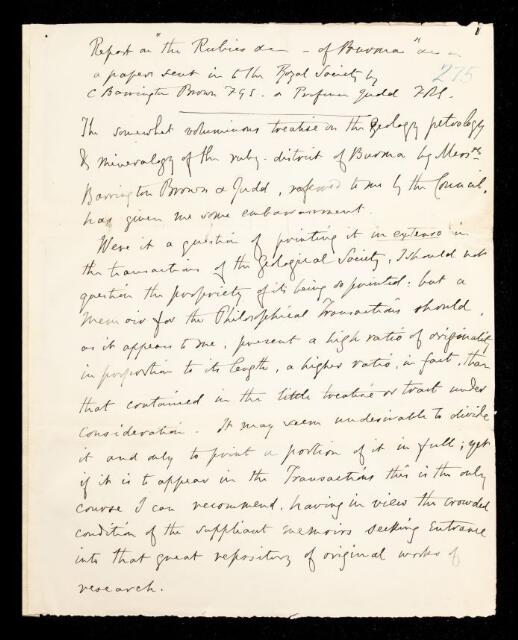 Report on "the Rubies &c — of Burma" &c in
a paper sent in to the Royal Society by
275
C Barrington Brown FGS. & Professor Judd FRS.
The somewhat voluminous treatise on the Geology petrology
& mineralogy of the ruby-district of Burma by Messrs
Barrington Brown & Judd, referred to me by the Council,
has given me some embarrassment.
Were it a question of printing it in extenso in
the transactions of the Geological Society, I should not
question the propriety of its being so printed: but a
Memoir for the Philosophical Transactions should,
as it appears to me, present a high ratio of originality
in proportion to its length, a higher ratio, in fact, than
that contained in the little treatise or tract under
consideration. It may seem undesirable to divide
it and only to print a portion of it in full; yet
if it is to appear in the Transactions this is the only
course I can recommend, having in view the crowded
condition of the suppliant memoirs seeking entrance
into that great repository of original works of
research.